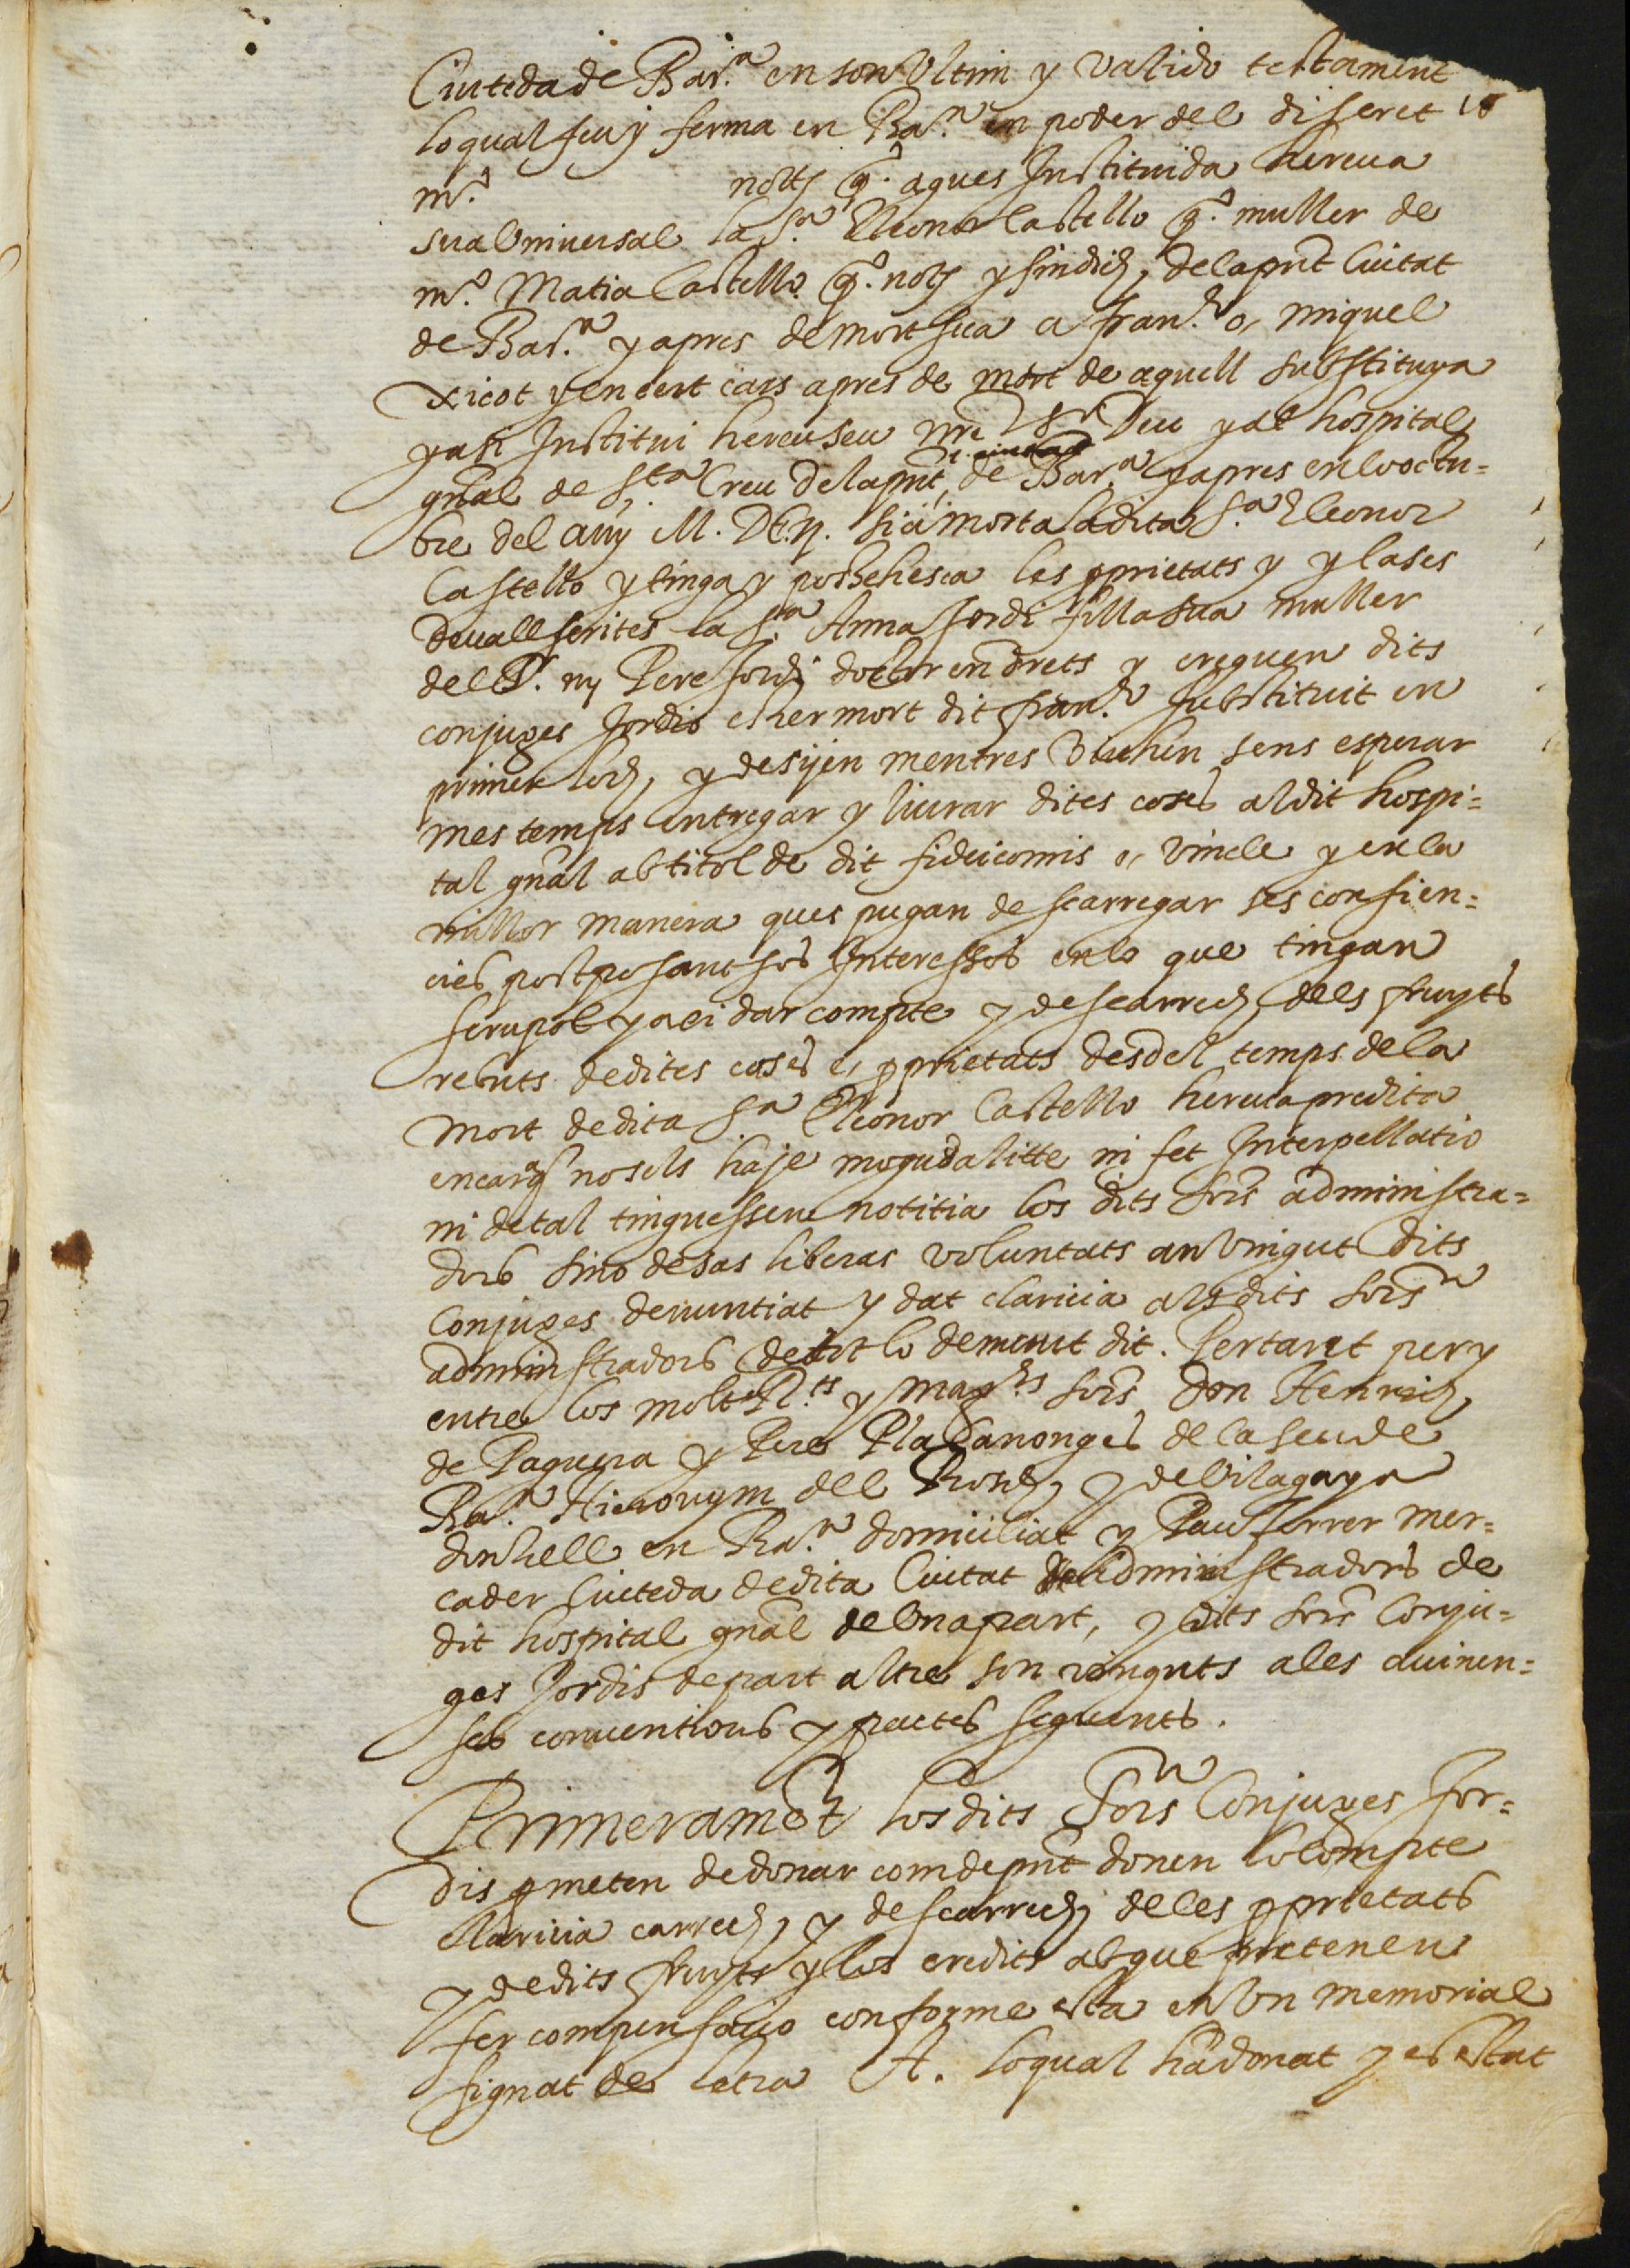 Ciuteda de Bar.ª en son Ultim y valido testament
lo qual feu y ferma en Ba.ª en poder del discret
m.º notj q.º agues Instituida hereua
sua Universal la S.ª Eleonor Castello q.º muller de
m.º Matia Castello q.º notj y sindich, de la pnt Ciutat
de Bar.ª y apres de mort sua a fran.ch o, miquel
xicot y en cert cars apres de mort de aquell substituya
y asi Institui hereu seu nre Sr Deu y al hospital
gñal de S.ta Creu de la pnt, de Bar.ª y apres en lo octu=
bre del any M. D. sia morta la dita S.ª Eleonor
Castello y tinga y possehesca les pprietats y y lases
deuall scrites la S.ra Anna Jordi filla sua muller
del S.r my Pere Jordi doctor en drets y creguen dits
conjuges Jordis esser mort dit fran.ch substituit en
primer loch, y desijen mentres viuhen sens esperar
mes temps entregar y liurar dites coses al dit hospi=
tal gñal ab titol de dit fideicomis o, vincle y en la
millor manera ques pugan descarregar ses consien=
cies postposant sos Interessos en lo que tingan
scrupol y axi dar compte y descarrech, dels fruyts
rebuts de dites coses e, pprietats des del temps de la
mort de dita S.ª Eleonor Castello hereua predita
encarq nosels haje moguda litte ni fet Interpellatio
ni de tal tinguessen notitia los dits srs administra=
dors sino de sas liberas voluntats an vingut dits
Conjuges denuntiat y dat claricia als dits sors
administradors de tot lo demunt dit. Pertant per y
entre los molt R.ts y mag.chs sors Don Henrich,
de Paguera y Pere Pla Canonges de la seu de
Ba.ª Hieronym del Rosch, y de Vilagaya
donsell en Ba.ª domiciliat y Pau ferrer mer=
cader Ciuteda de dita Ciutat Administradors de
dit hospital gñal de Una part, y dits srs Conju=
ges Jordis de part altre son vinguts a les auinen=
ses conuentions y pactes seguents.
Primeramēt los dits Sors Conjuges Jor=
dis pmeten de donar com de pnt donen lo compte
claricia carrech, y descarrech, de les pprietats
y de dits fruyts y los credits ab que pretenen
fer compensatio conforme esta en Un memorial
signat de letra A. lo qual hā donat y es estat